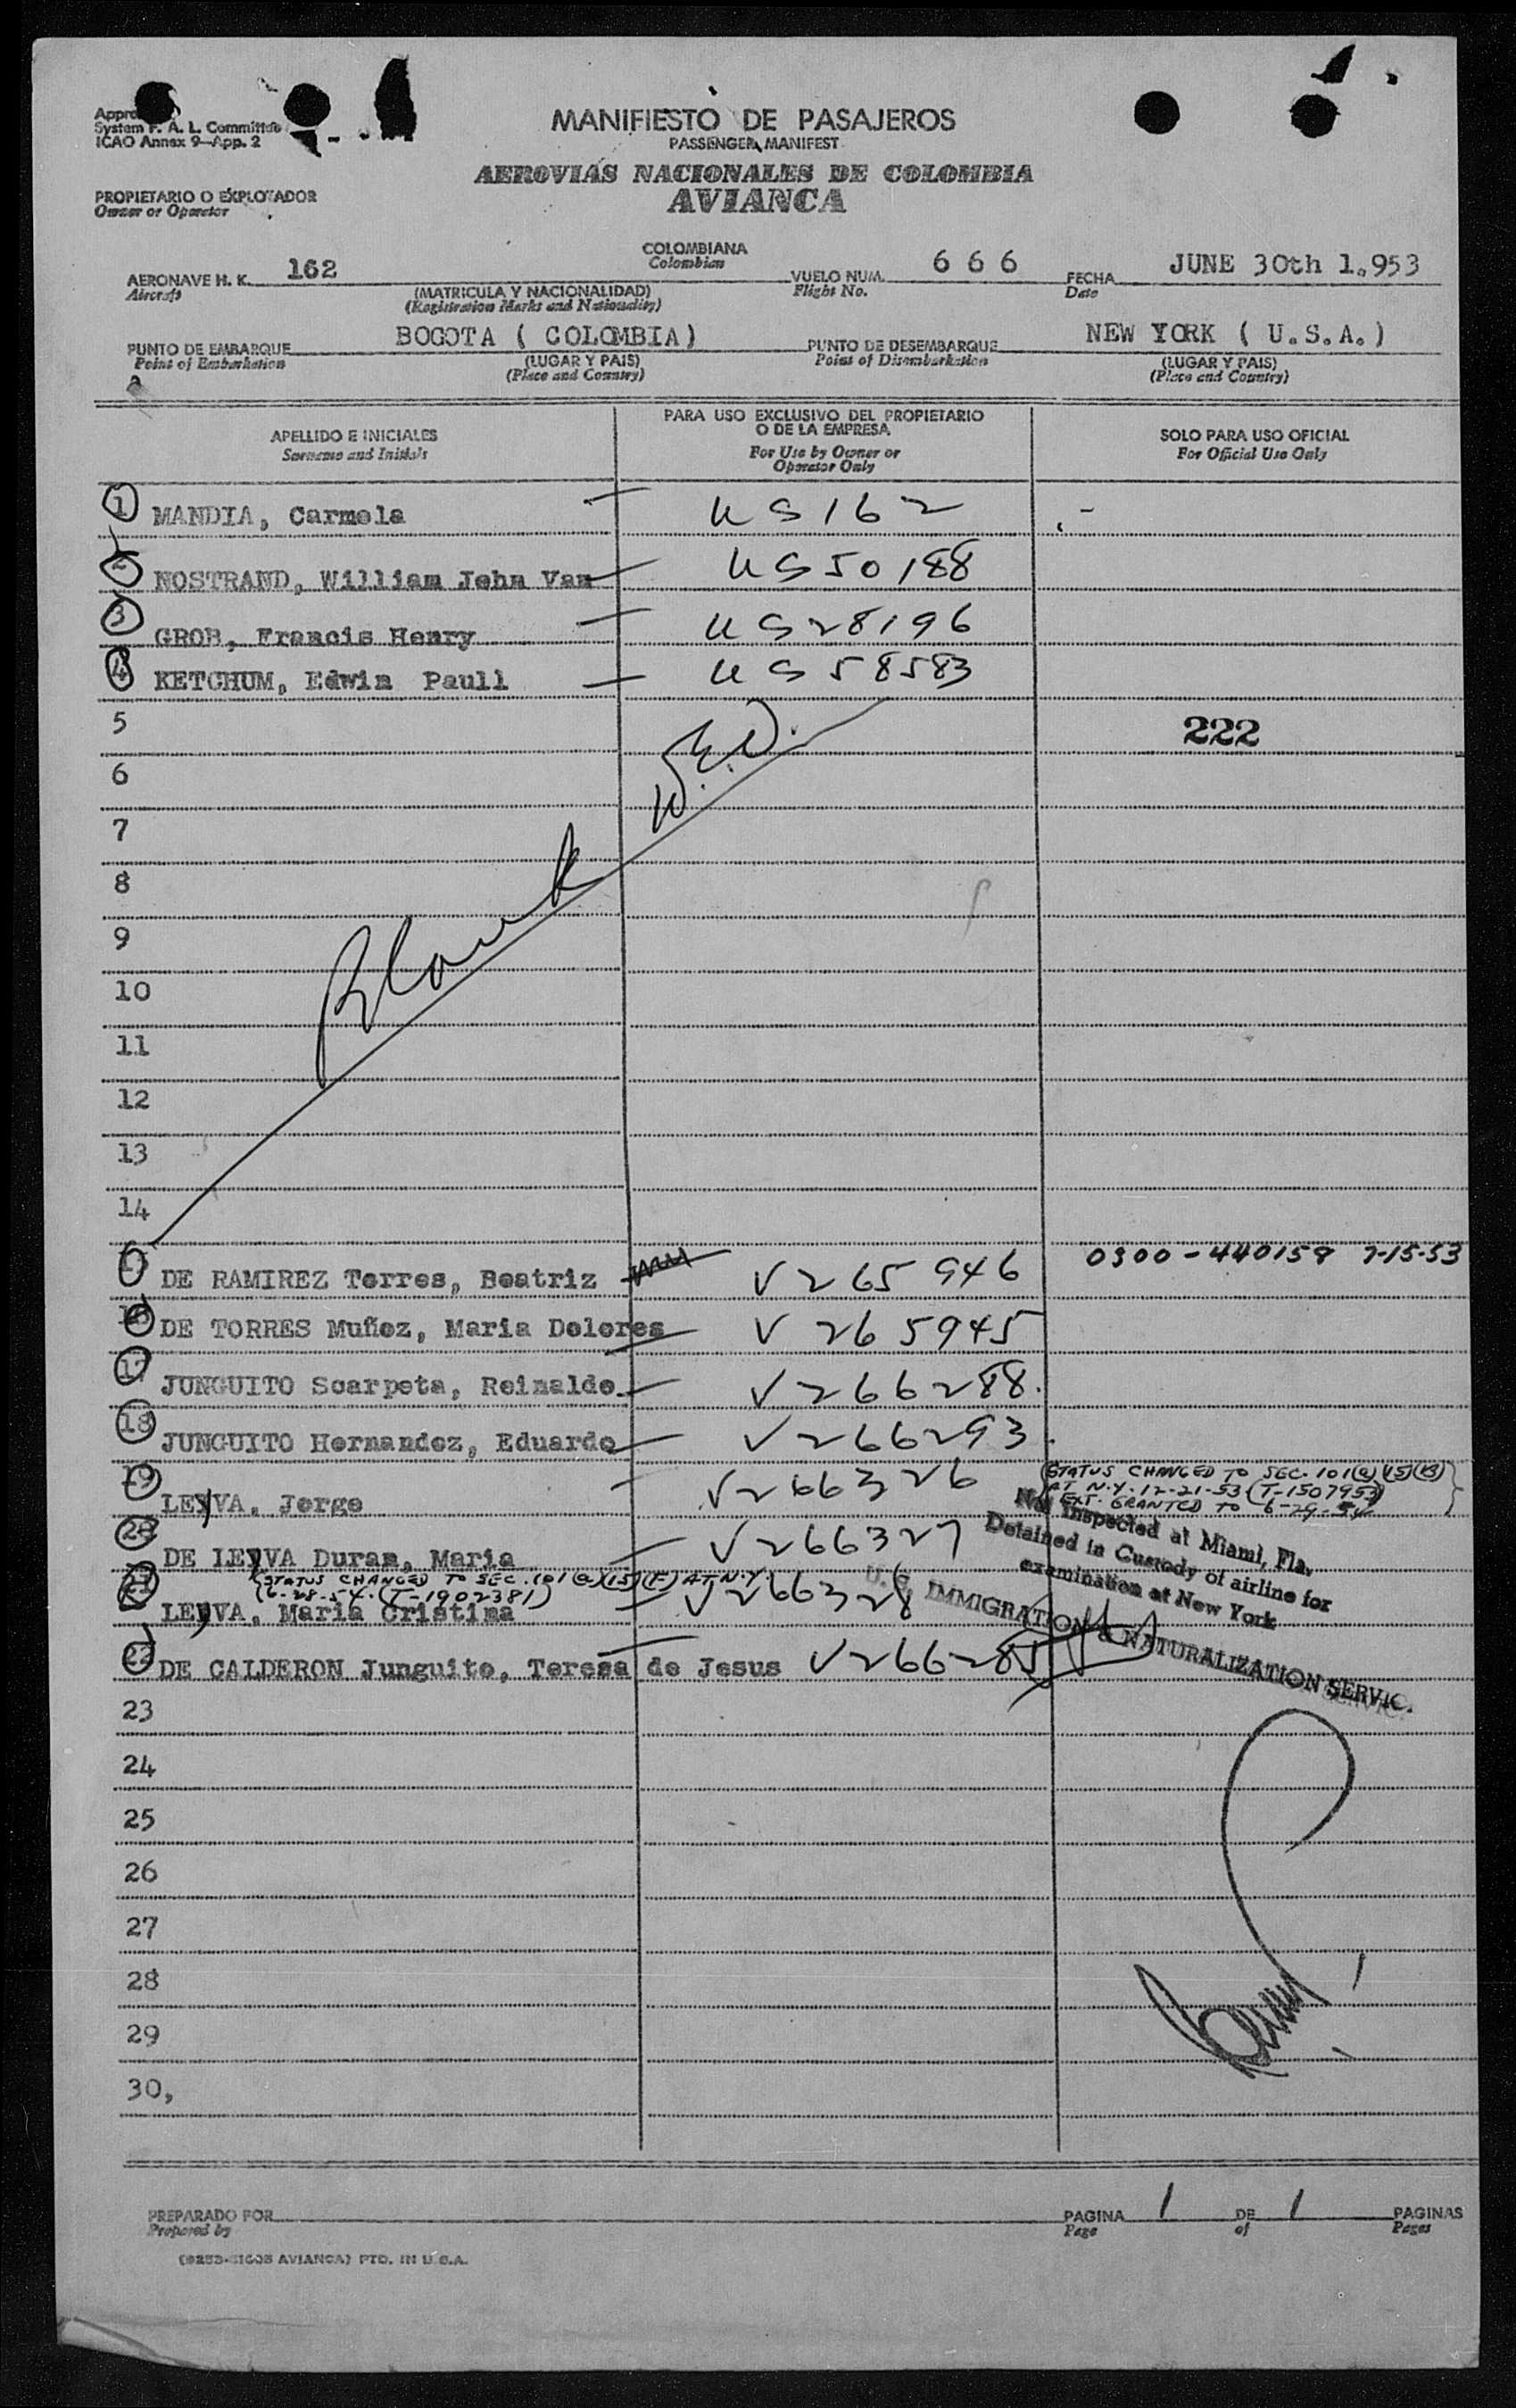 System F. A. L. Committee
ICAO Annex 9—App. 2
MANIFIESTO DE PASAJEROS
PASSENGER MANIFEST
AEROVIAS NACIONALES DE COLOMBIA
AVIANCA
PROPIETARIO O EXPLOTADOR
Owner or Operator
AERONAVE H. K. 162 COLOMBIANA VUELO NUM. 6 6 6 FECHA JUNE 30th 1.953
Aircraft Colombian Flight No. Date
(MATRICULA Y NACIONALIDAD)
(Registration Marks and Nationality)
PUNTO DE EMBARQUE BOGOTA ( COLOMBIA) PUNTO DE DESEMBARQUE NEW YORK ( U.S.A.)
Point of Embarkation (LUGAR Y PAIS) Point of Disembarkation (LUGAR Y PAIS)
(Place and Country) (Place and Country)
APELLIDO E INICIALES
Surname and Initials
PARA USO EXCLUSIVO DEL PROPIETARIO
O DE LA EMPRESA
For Use by Owner or
Operator Only
SOLO PARA USO OFICIAL
For Official Use Only
1 MANDIA, Carmela US162
2 NOSTRAND, William John Van US50188
3 GROB, Francis Henry US28196
4 KETCHUM, Edwin Paull US58583
5 222
6
7
8
9
10
11
12
13
14
Blank W.E.D.
15 DE RAMIREZ Torres, Beatriz V265946 0300-440159 7-15-53
16 DE TORRES Muñoz, Maria Dolores V265945
17 JUNGUITO Scarpeta, Reinaldo V266288.
18 JUNGUITO Hernandez, Eduardo V266293
19 LEYVA, Jorge V266326
(STATUS CHANGED TO SEC. 101(a)(15)(B)
AT N.Y. 12-21-53 (T-1507953)
EXT. GRANTED TO 6-29-54
20 DE LEYVA Duran, Maria V266327
(STATUS CHANGED TO SEC. 101(a)(15)(F) AT N.Y.
(6-28-54. (T-1902381)
21 LEYVA, Maria Cristina V266328
Not Inspected at Miami, Fla.
Detained in Custody of airline for
examination at New York
U. S. IMMIGRATION & NATURALIZATION SERVIC.
22 DE CALDERON Junguito, Teresa de Jesus V266285
23
24
25
26
27
28
29
30,
PREPARADO POR PAGINA 1 DE 1 PAGINAS
Prepared by Page of Pages
AVIANCA) PTD. IN U.S.A.